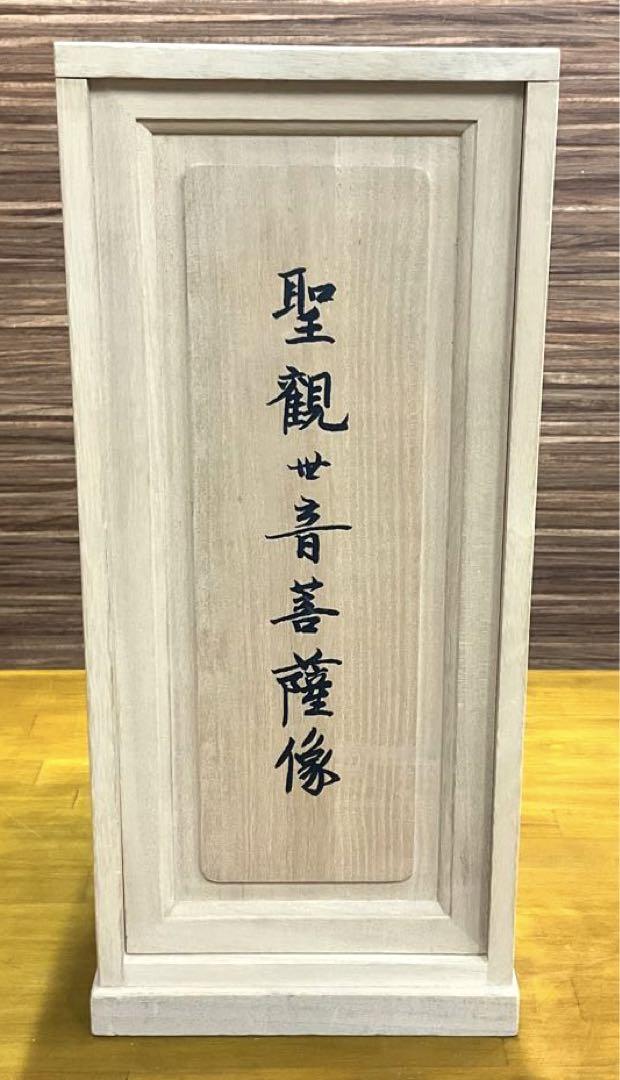 聖觀世音菩薩像